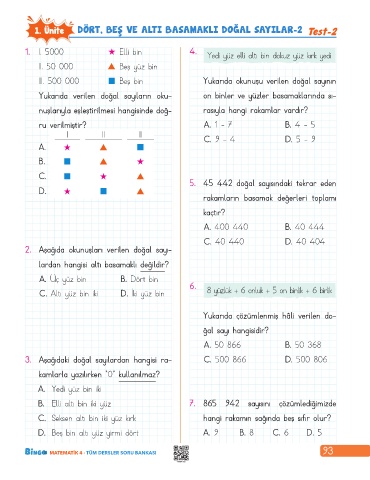 1. Ünite DÖRT, BEŞ VE ALTI BASAMAKLI DOĞAL SAYILAR-2 Test-2
1. I. 5000 ★ Elli bin
II. 50 000 ▲ Beş yüz bin
III. 500 000 ■ Beş bin
Yukarıda verilen doğal sayıların oku-
nuşlarıyla eşleştirilmesi hangisinde doğ-
ru verilmiştir?
I II III
A. ★ ▲ ■
B. ■ ▲ ★
C. ■ ★ ▲
D. ★ ■ ▲
2. Aşağıda okunuşları verilen doğal sayı-
lardan hangisi altı basamaklı değildir?
A. Üç yüz bin B. Dört bin
C. Altı yüz bin iki D. İki yüz bin
3. Aşağıdaki doğal sayılardan hangisi ra-
kamlarla yazılırken "0" kullanılmaz?
A. Yedi yüz bin iki
B. Elli altı bin iki yüz
C. Seksen altı bin iki yüz kırk
D. Beş bin altı yüz yirmi dört
4. Yedi yüz elli altı bin dokuz yüz kırk yedi
Yukarıda okunuşu verilen doğal sayının
on binler ve yüzler basamaklarında sı-
rasıyla hangi rakamlar vardır?
A. 1 - 7 B. 4 - 5
C. 9 - 4 D. 5 - 9
5. 45 442 doğal sayısındaki tekrar eden
rakamların basamak değerleri toplamı
kaçtır?
A. 400 440 B. 40 444
C. 40 440 D. 40 404
6. 8 yüzlük + 6 onluk + 5 on binlik + 6 birlik
Yukarıda çözümlenmiş hâli verilen do-
ğal sayı hangisidir?
A. 50 866 B. 50 368
C. 500 866 D. 500 806
7. 865 942 sayısını çözümlediğimizde
hangi rakamın sağında beş sıfır olur?
A. 9 B. 8 C. 6 D. 5
BİNGO MATEMATİK 4 - TÜM DERSLER SORU BANKASI
93